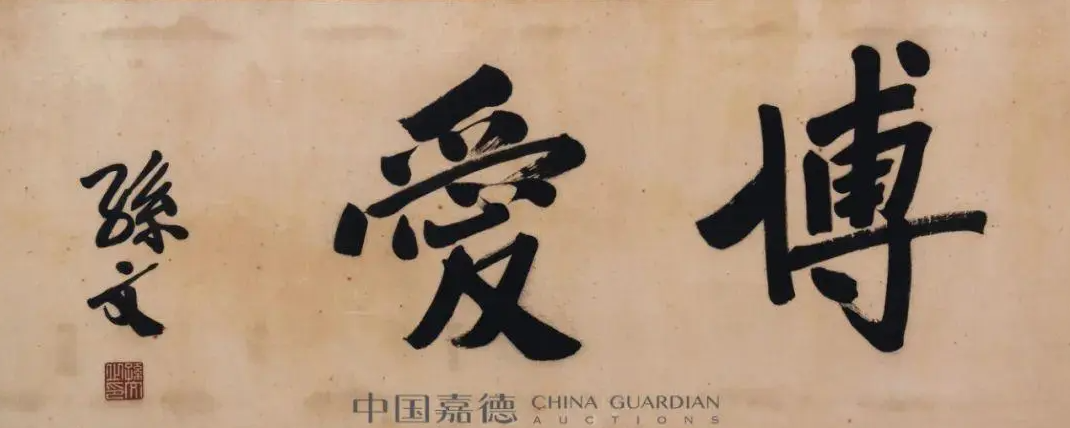 博愛
孫文
孫文之印
中国嘉德 CHINA GUARDIAN
AUCTIONS